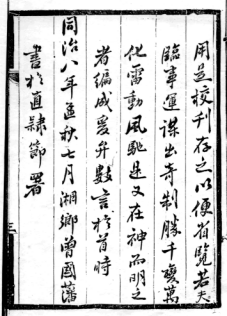 用是校刊存之以便省覽若夫
臨事運謀出奇制勝千變萬
化雷動風馳是又在神而明之
者編成爰弁數言於首時
同治八年孟秋七月湘鄉曾國藩
書於直隸節署
三